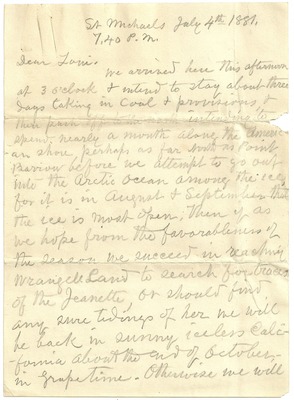 St Michaels July 4th 1881,
7.40 P.M.
Dear Louie.
We arrived here this afternoon
at 3 o'clock & intend to stay about three
days taking in Coal & provisions, &
then push off to the
spend nearly a month along the Ameri-
can shore, perhaps as far North as Point
Barrow before we attempt to go out
into the Arctic Ocean among the ice,
for it is in August & September that
the ice is most open. Then if, as
we hope from the favorableness of
the season we succeed in reaching
Wrangel Land to search for traces
of the Jeanette, or should find
any sure tidings of her we will
be back in sunny iceless Cali-
fornia about the end of October,
in grape time. Otherwise we will